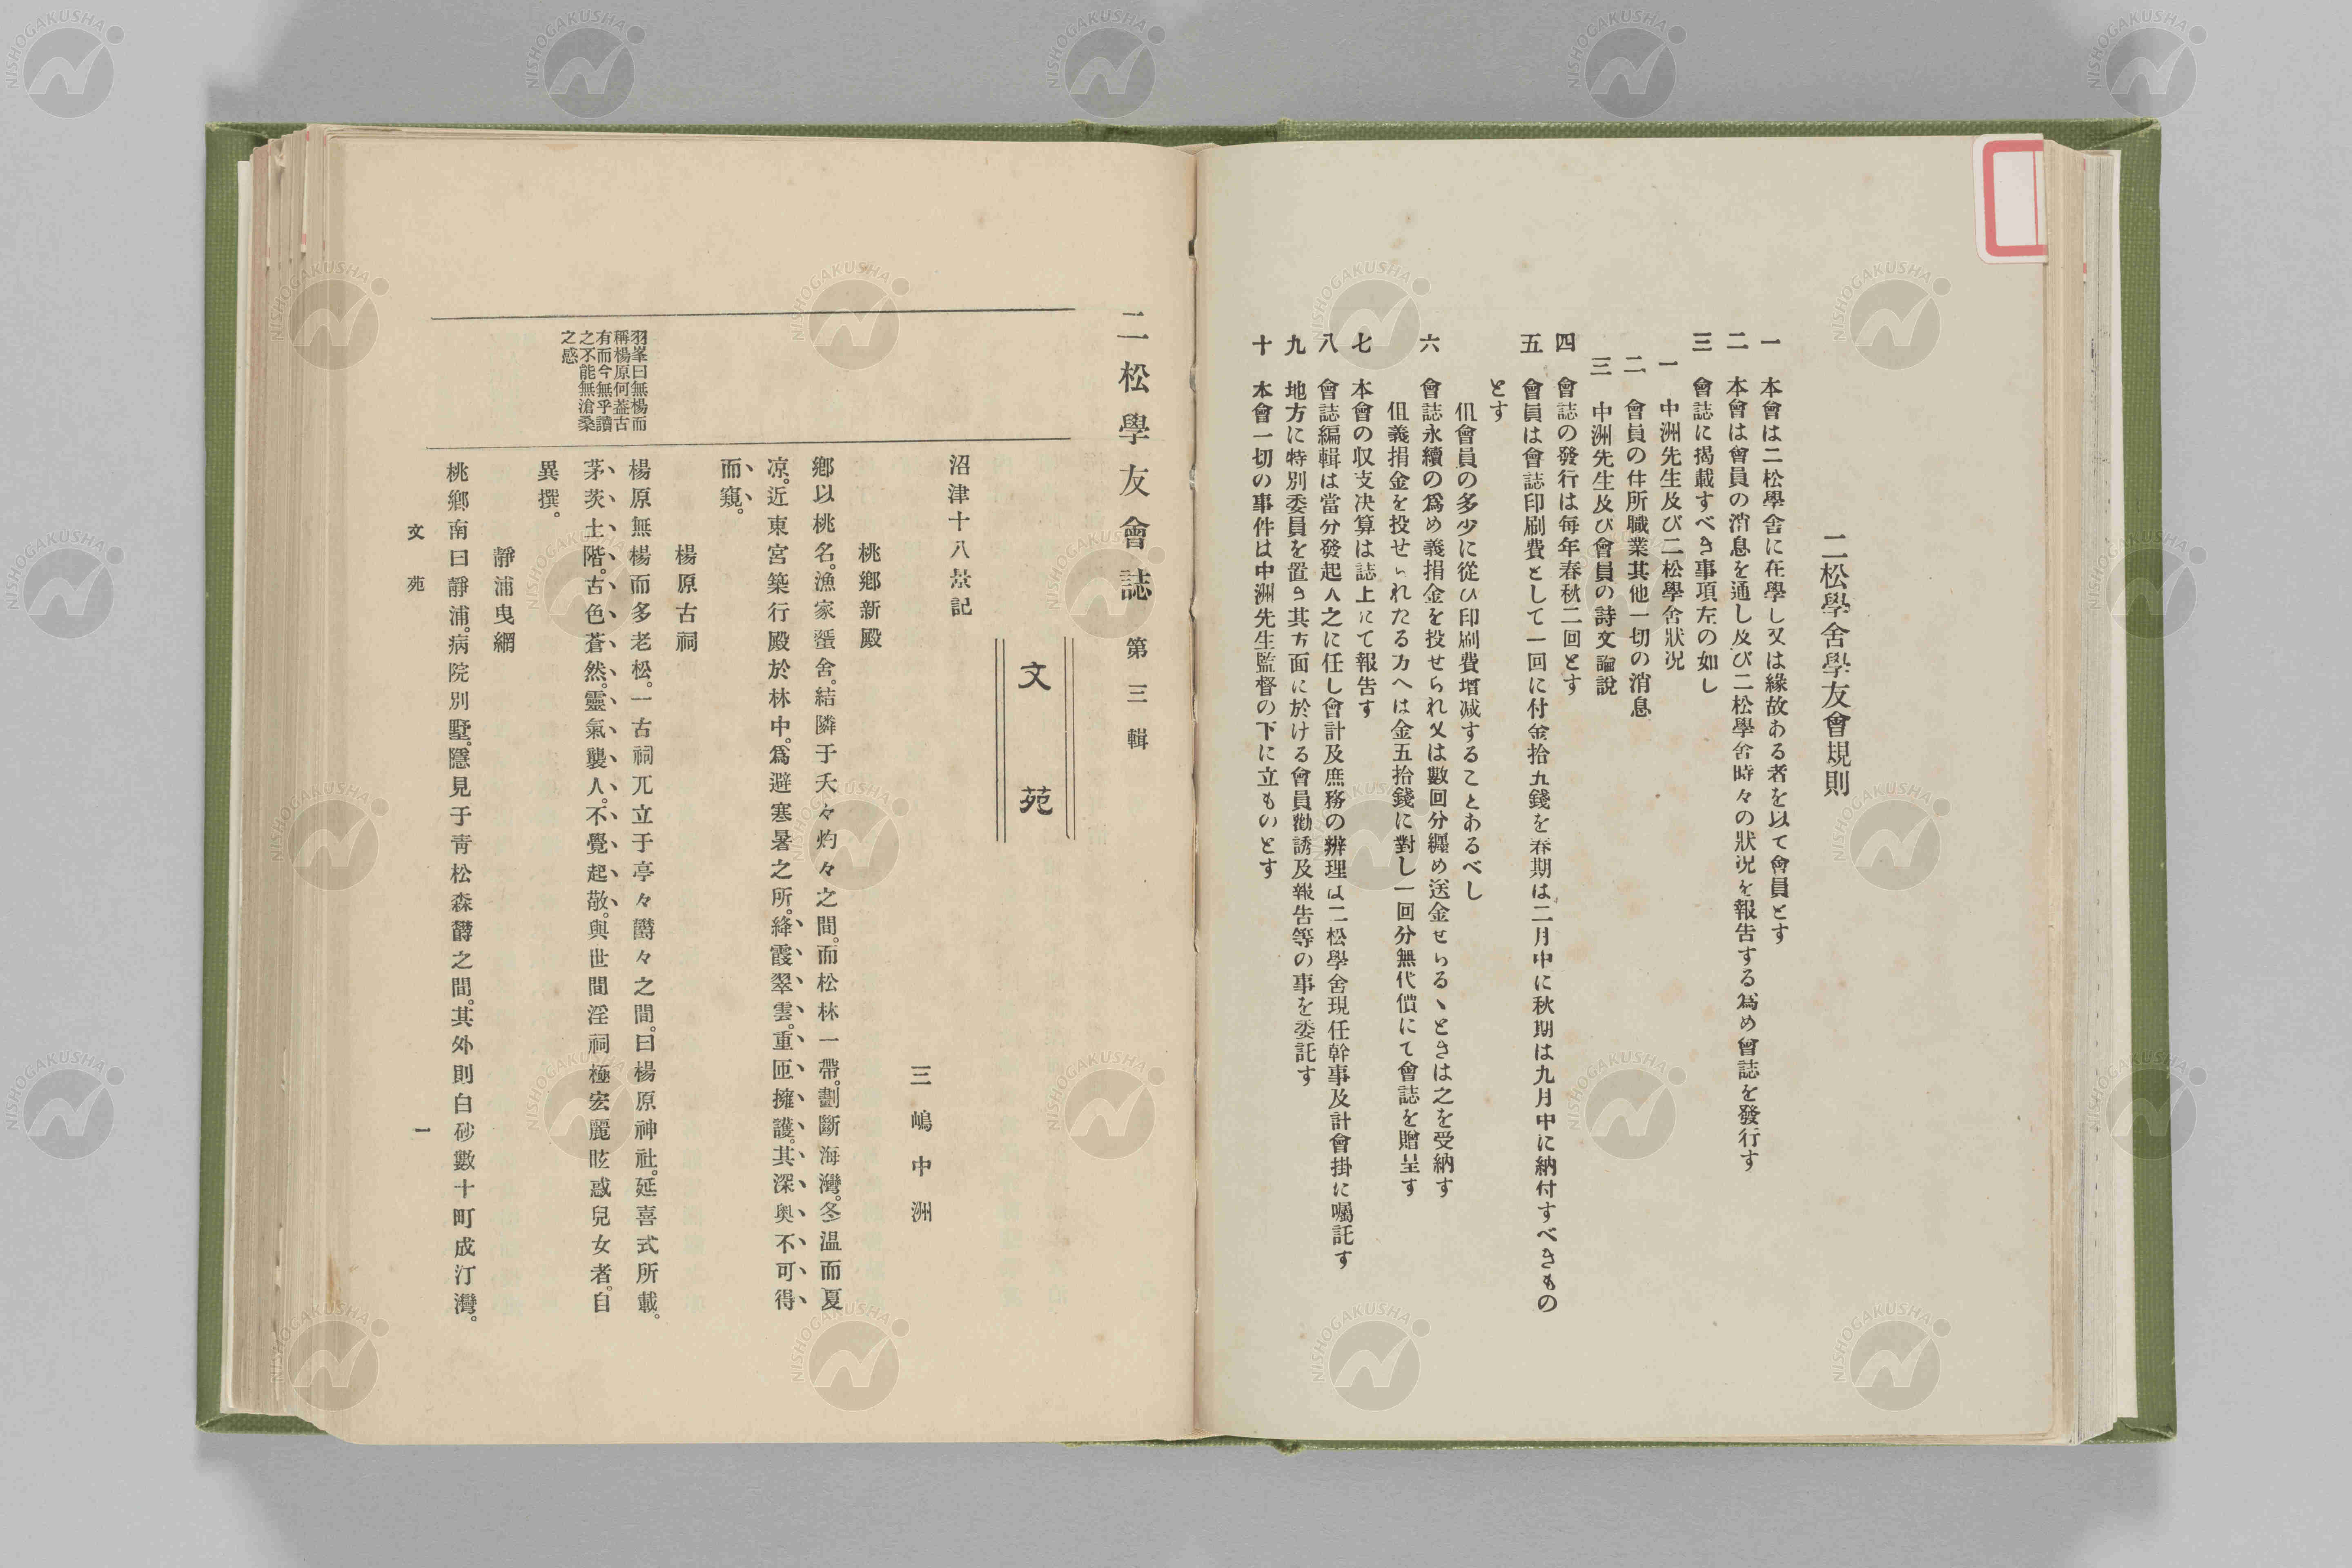 二松學舍學友會規則
一 本會は二松學舍に在學し又は緣故ある者を以て會員とす
二 本會は會員の消息を通し及び二松學舍時々の狀況を報告する爲め會誌を發行す
三 會誌に揭載すべき事項左の如し
一 中洲先生及び二松學舍狀況
二 會員の住所職業其他一切の消息
三 中洲先生及び會員の詩文論說
四 會誌の發行は每年春秋二回とす
五 會員は會誌印刷費として一回に付金拾五錢を春期は二月中に秋期は九月中に納付すべきもの
とす
但會員の多少に從ひ印刷費增減することあるべし
六 會誌永續の爲め義捐金を投せられ又は數回分纏め送金せらるゝときは之を受納す
但義捐金を投せられたる方へは金五拾錢に對し一回分無代價にて會誌を贈呈す
七 本會の収支决算は誌上にて報告す
八 會誌編輯は當分發起人之に任し會計及庶務の辨理は二松學舍現任幹事及計會掛に囑託す
九 地方に特別委員を置き其方面に於ける會員勸誘及報告等の事を委託す
十 本會一切の事件は中洲先生監督の下に立ものとす
二松學友會誌 第三輯
文苑
沼津十八景記
三嶋中洲
桃鄕新殿
鄕以桃名。漁家蜑舍。結隣于夭々灼々之間。而松林一帶。劃斷海灣。冬溫而夏
凉。近東宮築行殿於林中。爲避寒暑之所。絳霞翠雲。重匝擁護。其深奧不可得
而窺。
楊原古祠
楊原無楊而多老松。一古祠兀立于亭々欝々之間。曰楊原神社。延喜式所載。
茅茨土階。古色蒼然。靈氣襲人。不覺起敬。與世間淫祠極宏麗眩惑兒女者。自
異撰。
羽峯曰無楊而
稱楊原何葢古
有而今無乎讀
之不能無滄桑
之感
靜浦曳網
桃鄕南曰靜浦。病院別墅。隱見于靑松森欝之間。其外則白砂數十町成汀灣。
文苑
一
NISHOGAKUSHA